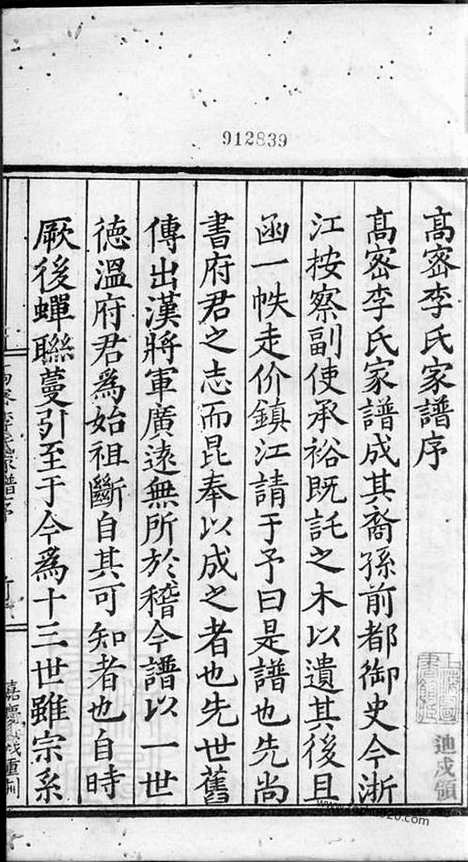 912839
高密李氏家譜序
高密李氏家譜成其裔孫前都御史今浙
江按察副使承裕既託之木以遺其後且
函一帙走价鎮江請于予曰是譜也先尚
書府君之志而昆奉以成之者也先世舊
傳出漢將軍廣遠無所於稽今譜以一世
徳溫府君爲始祖斷自其可知者也自時
厥後蟬聯蔓引至于今爲十三世雖宗系
高密李氏家譜序
嘉慶
重刊
迪成領